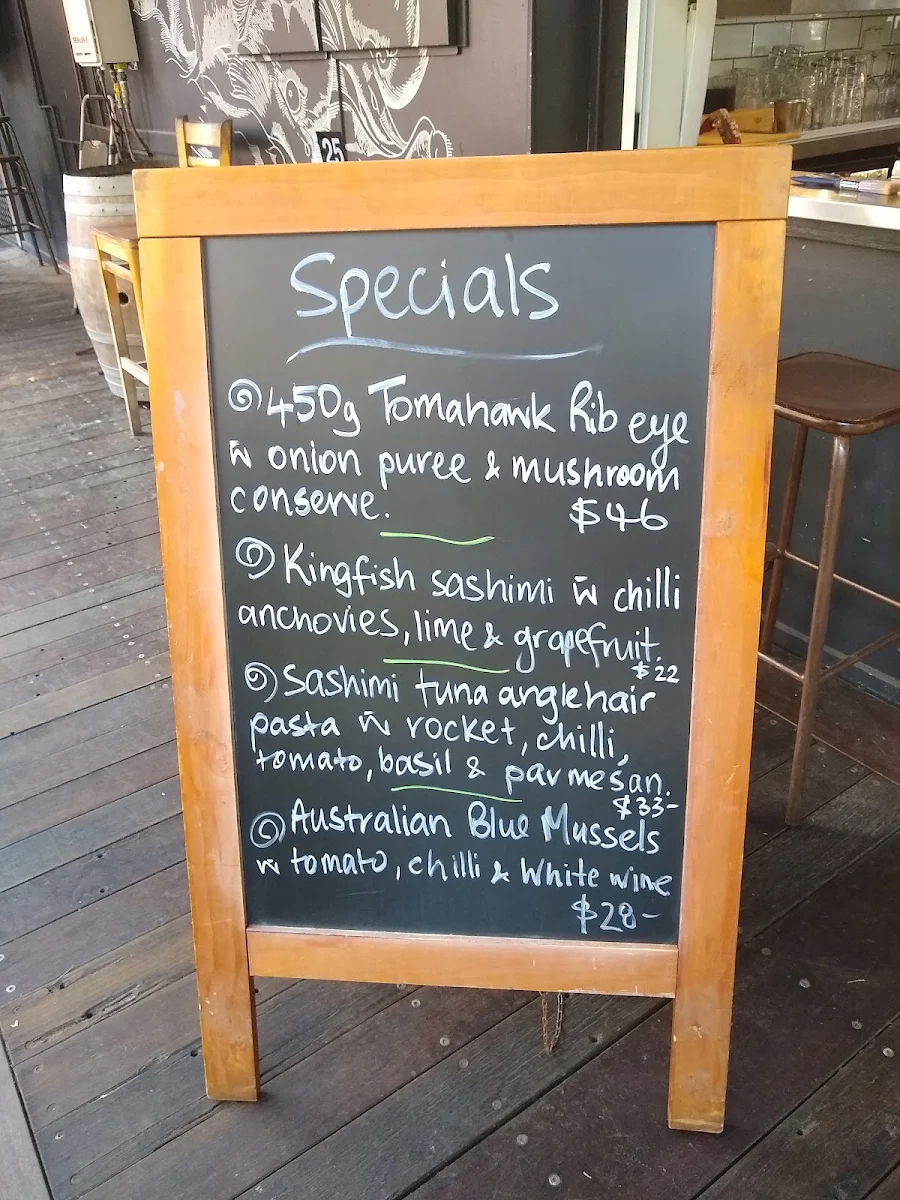 25
Specials
450g Tomahawk Rib eye
w̄ onion puree & mushroom
conserve. $46
Kingfish sashimi w̄ chilli
anchovies, lime & grapefruit.
$22
Sashimi tuna anglehair
pasta w̄ rocket, chilli,
tomato, basil & parmesan.
$33-
Australian Blue Mussels
w̄ tomato, chilli & White wine
$28-